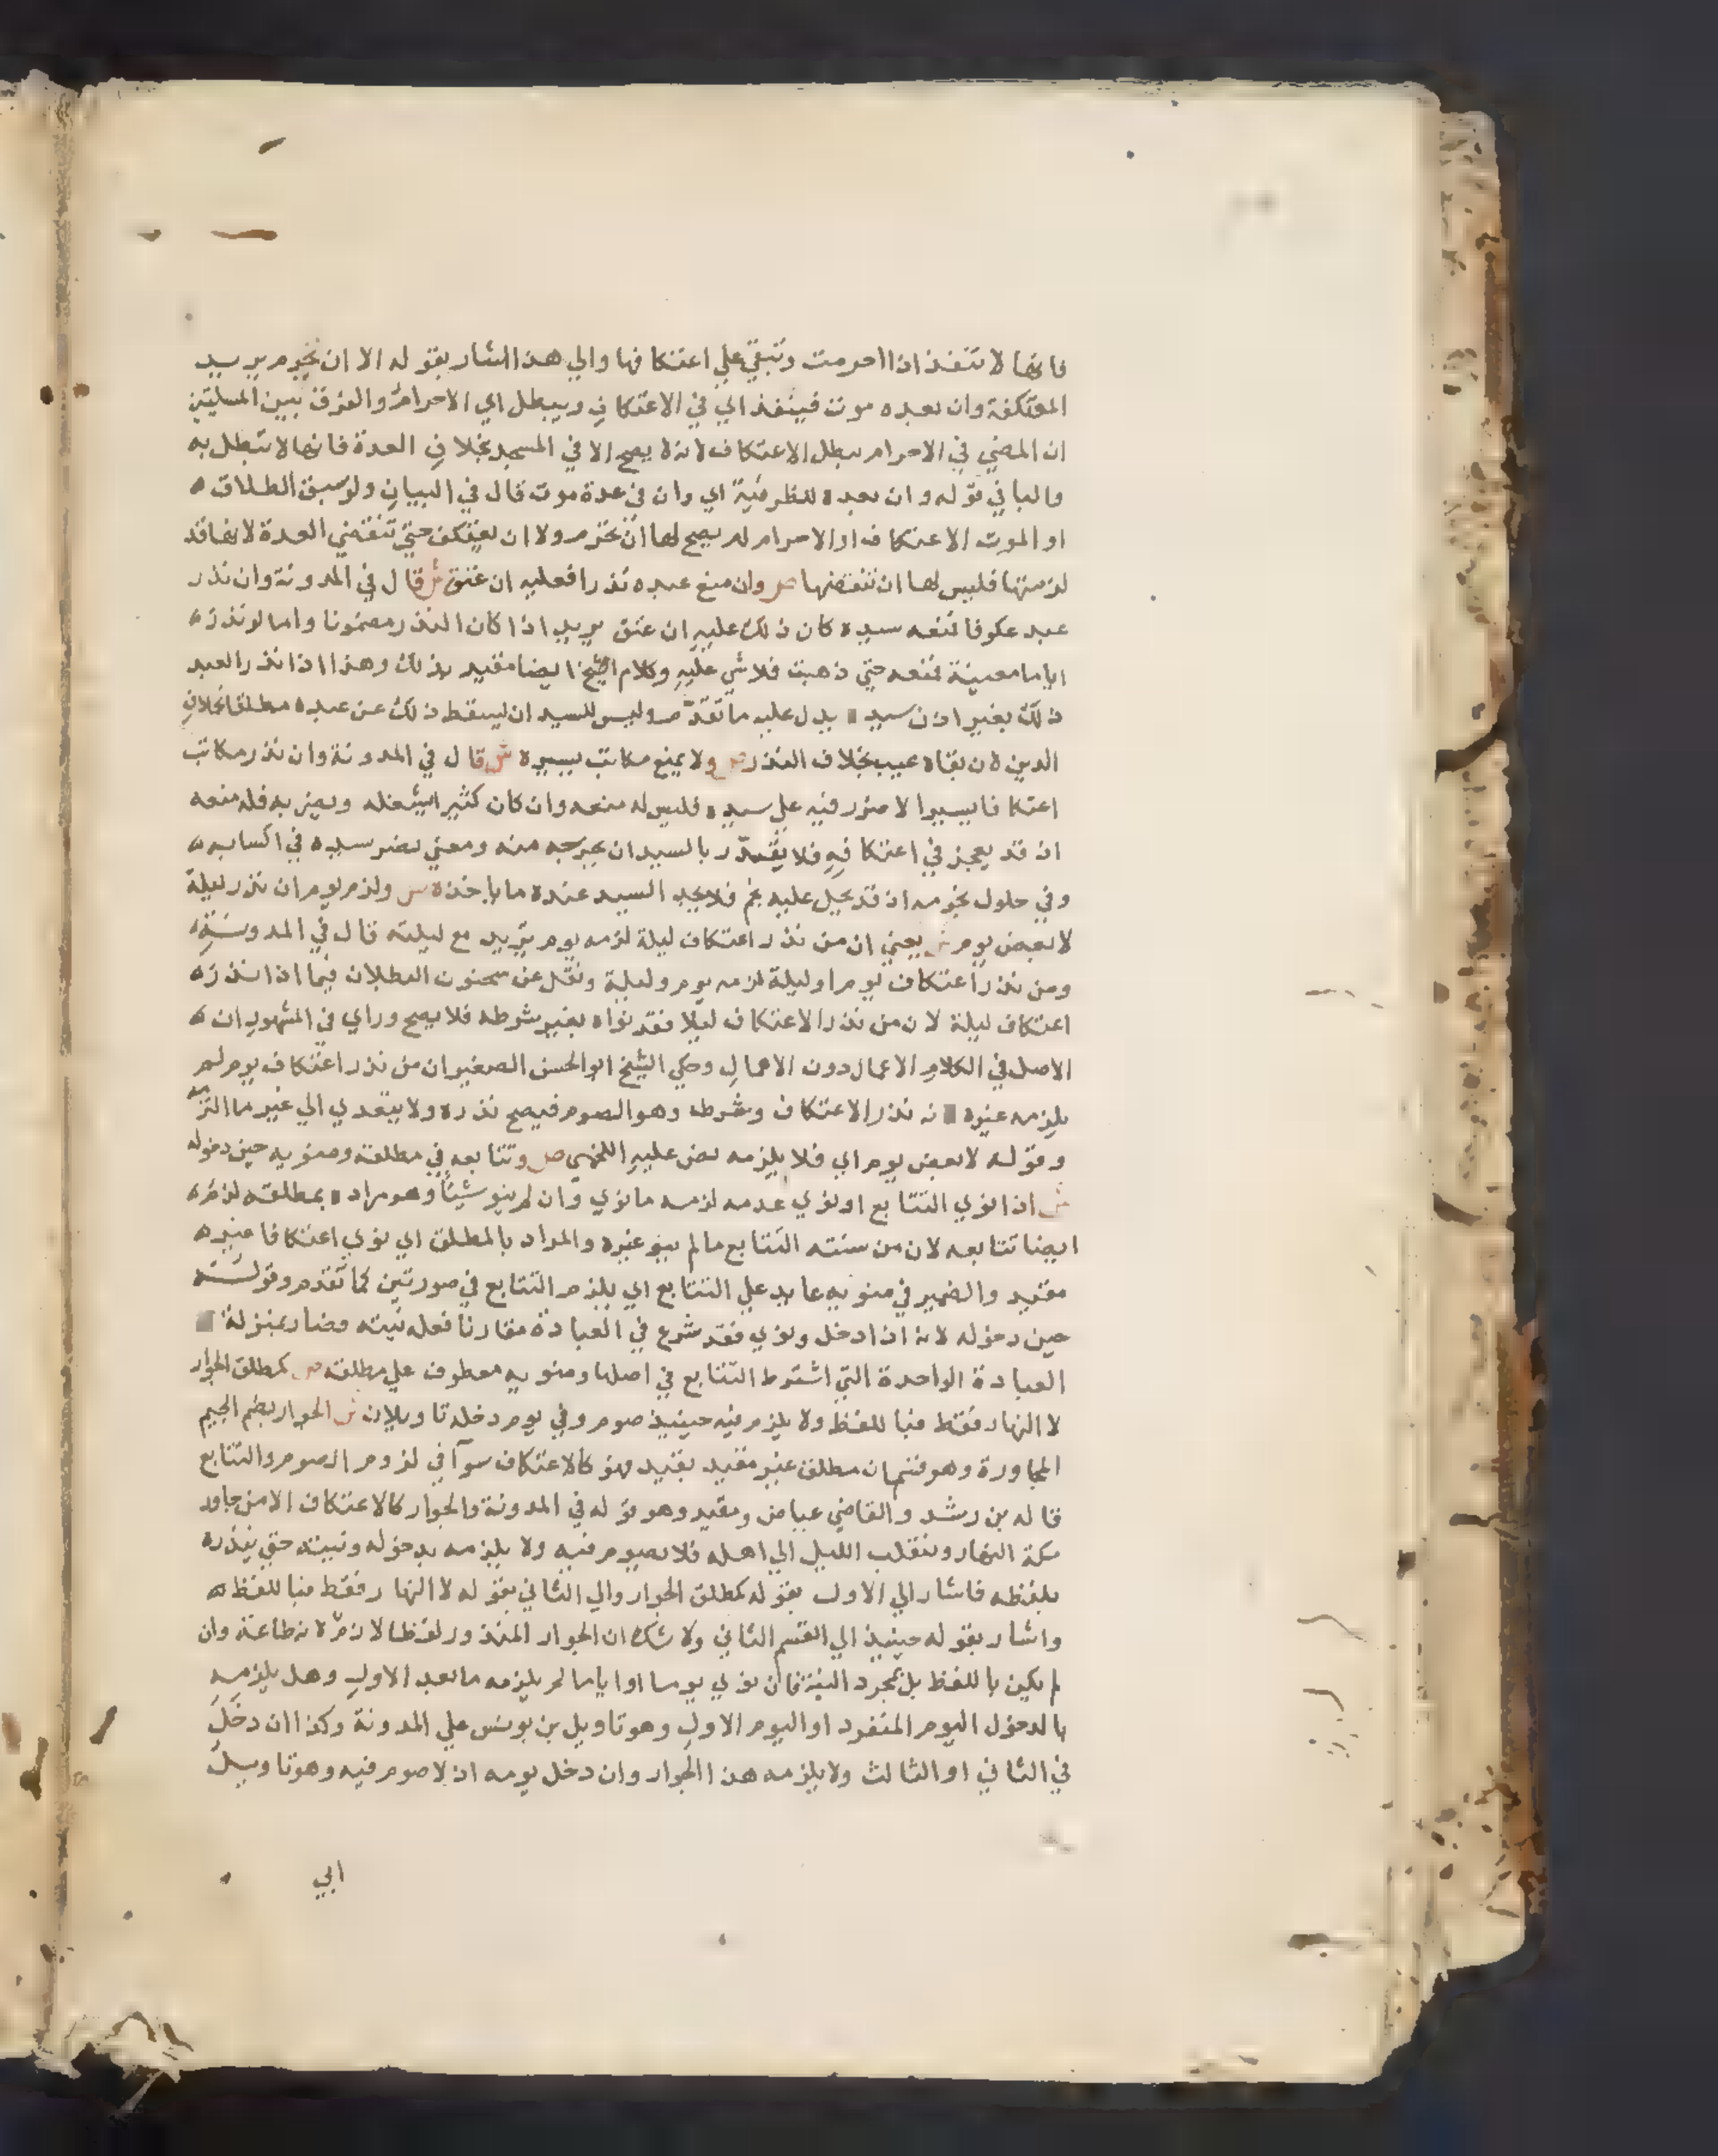 فانها لا تنفذ اذا احرمت وتبقي علي اعتكافها والي هذا اشار بقوله الا ان تحرم يريد
المعتكفة وان بعده موت فينفذ اي في الاعتكاف ويبطل اي الاحرام والفرق بين المسليتين
ان المضي في الاحرام يبطل الاعتكاف لانه لا يصح الا في المسجد بخلاف العدة فانها لا تبطل به
والبا في قوله وان بعده للظرفية اي وان في عدة موت قال في البيان ولو سبق الطلاق
او الموت الاعتكاف او الاحرام لم يصح لها ان تحرم ولا ان تعتكف حتي تنقضي العدة لانها قد
لزمتها فليس لها ان تنقضها ص وان منع عبده نذرا فعليه ان عتق ش قال في المدونة وان نذر
عبد عكوفا فمنعه سيده كان ذلك عليه ان عتق يريد اذا كان النذر مضمونا واما لو نذر
اياما معينة فمنعه حتي ذهبت فلا شي عليه وكلام الشيخ ايضا مقيد بذلك وهذا اذا نذر العبد
ذلك بغير اذن سيد يدل عليه ما تقدم وليس للسيد ان يسقط ذلك عن عبده مطلقا بخلاف
الدين لان بقاه عيب بخلاف النذر ص ولا يمنع مكاتب يسيره ش قال في المدونة وان نذر مكاتب
اعتكافا يسيرا لا ضرر فيه علي سيده فليس له منعه وان كان كثيرا يشغله ويضر به فله منعه
اذ قد يعجز في اعتكافه فلا يقدر بالسيد ان يخرجه منه ومعني يضر سيده في اكتسابه
وفي حلول نجومه اذ قد يحل عليه نجم فلا يجد السيد عنده ما ياخذه ص ولزم يوم ان نذر ليلة
لا بعض يوم ش يعني ان من نذر اعتكاف ليلة لزمه يوم يريد مع ليلته قال في المدونة
ومن نذر اعتكاف يوم او ليلة لزمه يوم وليلة ونقل عن سحنون البطلان فيما اذا نذر
اعتكاف ليلة لان من نذر الاعتكاف ليلا فقد نواه بغير شرطه فلا يصح وراي في المشهور ان
الاصل في الكلام الاعمال دون الاهمال وحكي الشيخ ابو الحسن الصغير ان من نذر اعتكاف يوم لم
يلزمه غيره نه نذر الاعتكاف وشرطه وهو الصوم فيصح نذره ولا يتعدي الي غير ما التزمه
وقوله لا بعض يوم اي فلا يلزمه نص عليه اللخمي ص وتتابعه في مطلقه ومنويه حين دخوله
ش اذا نوي التتابع او نوي عدمه لزمه ما نوي وان لم ينو شيئا وهو مراده بمطلقه لزمه
ايضا تتابعه لان من سنته التتابع ما لم ينو غيره والمراد بالمطلق اي نوي اعتكافا غير
مقيد والضمير في منويه عايد علي التتابع اي يلزم التتابع في صورتين كما تقدم وقوله
حين دخوله لانه اذا دخل ونوي فقد شرع في العبادة مقارنا فعله نيته فصار بمنزلة
العبادة الواحدة التي اشترط التتابع في اصلها ومنويه معطوف علي مطلقه ص كمطلق الجوار
لا النهار فقط فبا للفظ ولا يلزم فيه حينيذ صوم وفي يوم دخله تاويلان ش الجوار بضم الجيم
المجاورة وهو قسمان مطلق غير مقيد بقيد فهو كالاعتكاف سوآ في لزوم الصوم والتتابع
قاله بن رشد والقاضي عياض ومقيد وهو قوله في المدونة والجوار كالاعتكاف الا من جاور
مكة النهار وينقلب الليل الي اهله فلا يصوم فيه ولا يلزمه بدخوله ونيته حتي ينذره
بلفظه فاشار الي الاول بقوله كمطلق الجوار والي الثاني بقوله لا النهار فقط فبا للفظ
واشار بقوله حينيذ الي القسم الثاني ولا شك ان الجوار المنذور لفظا لازم لانه طاعة وان
لم يكن باللفظ بل بمجرد النية فان نوي يوما او اياما لم يلزمه ما بعد الاول وهل يلزمه
بالدخول اليوم المنفرد او اليوم الاول وهو تاويل بن يونس علي المدونة وكذا ان دخل
في الثاني او الثالث ولا يلزمه هذا الجوار وان دخل يومه اذ لا صوم فيه وهو تاويل
ابي